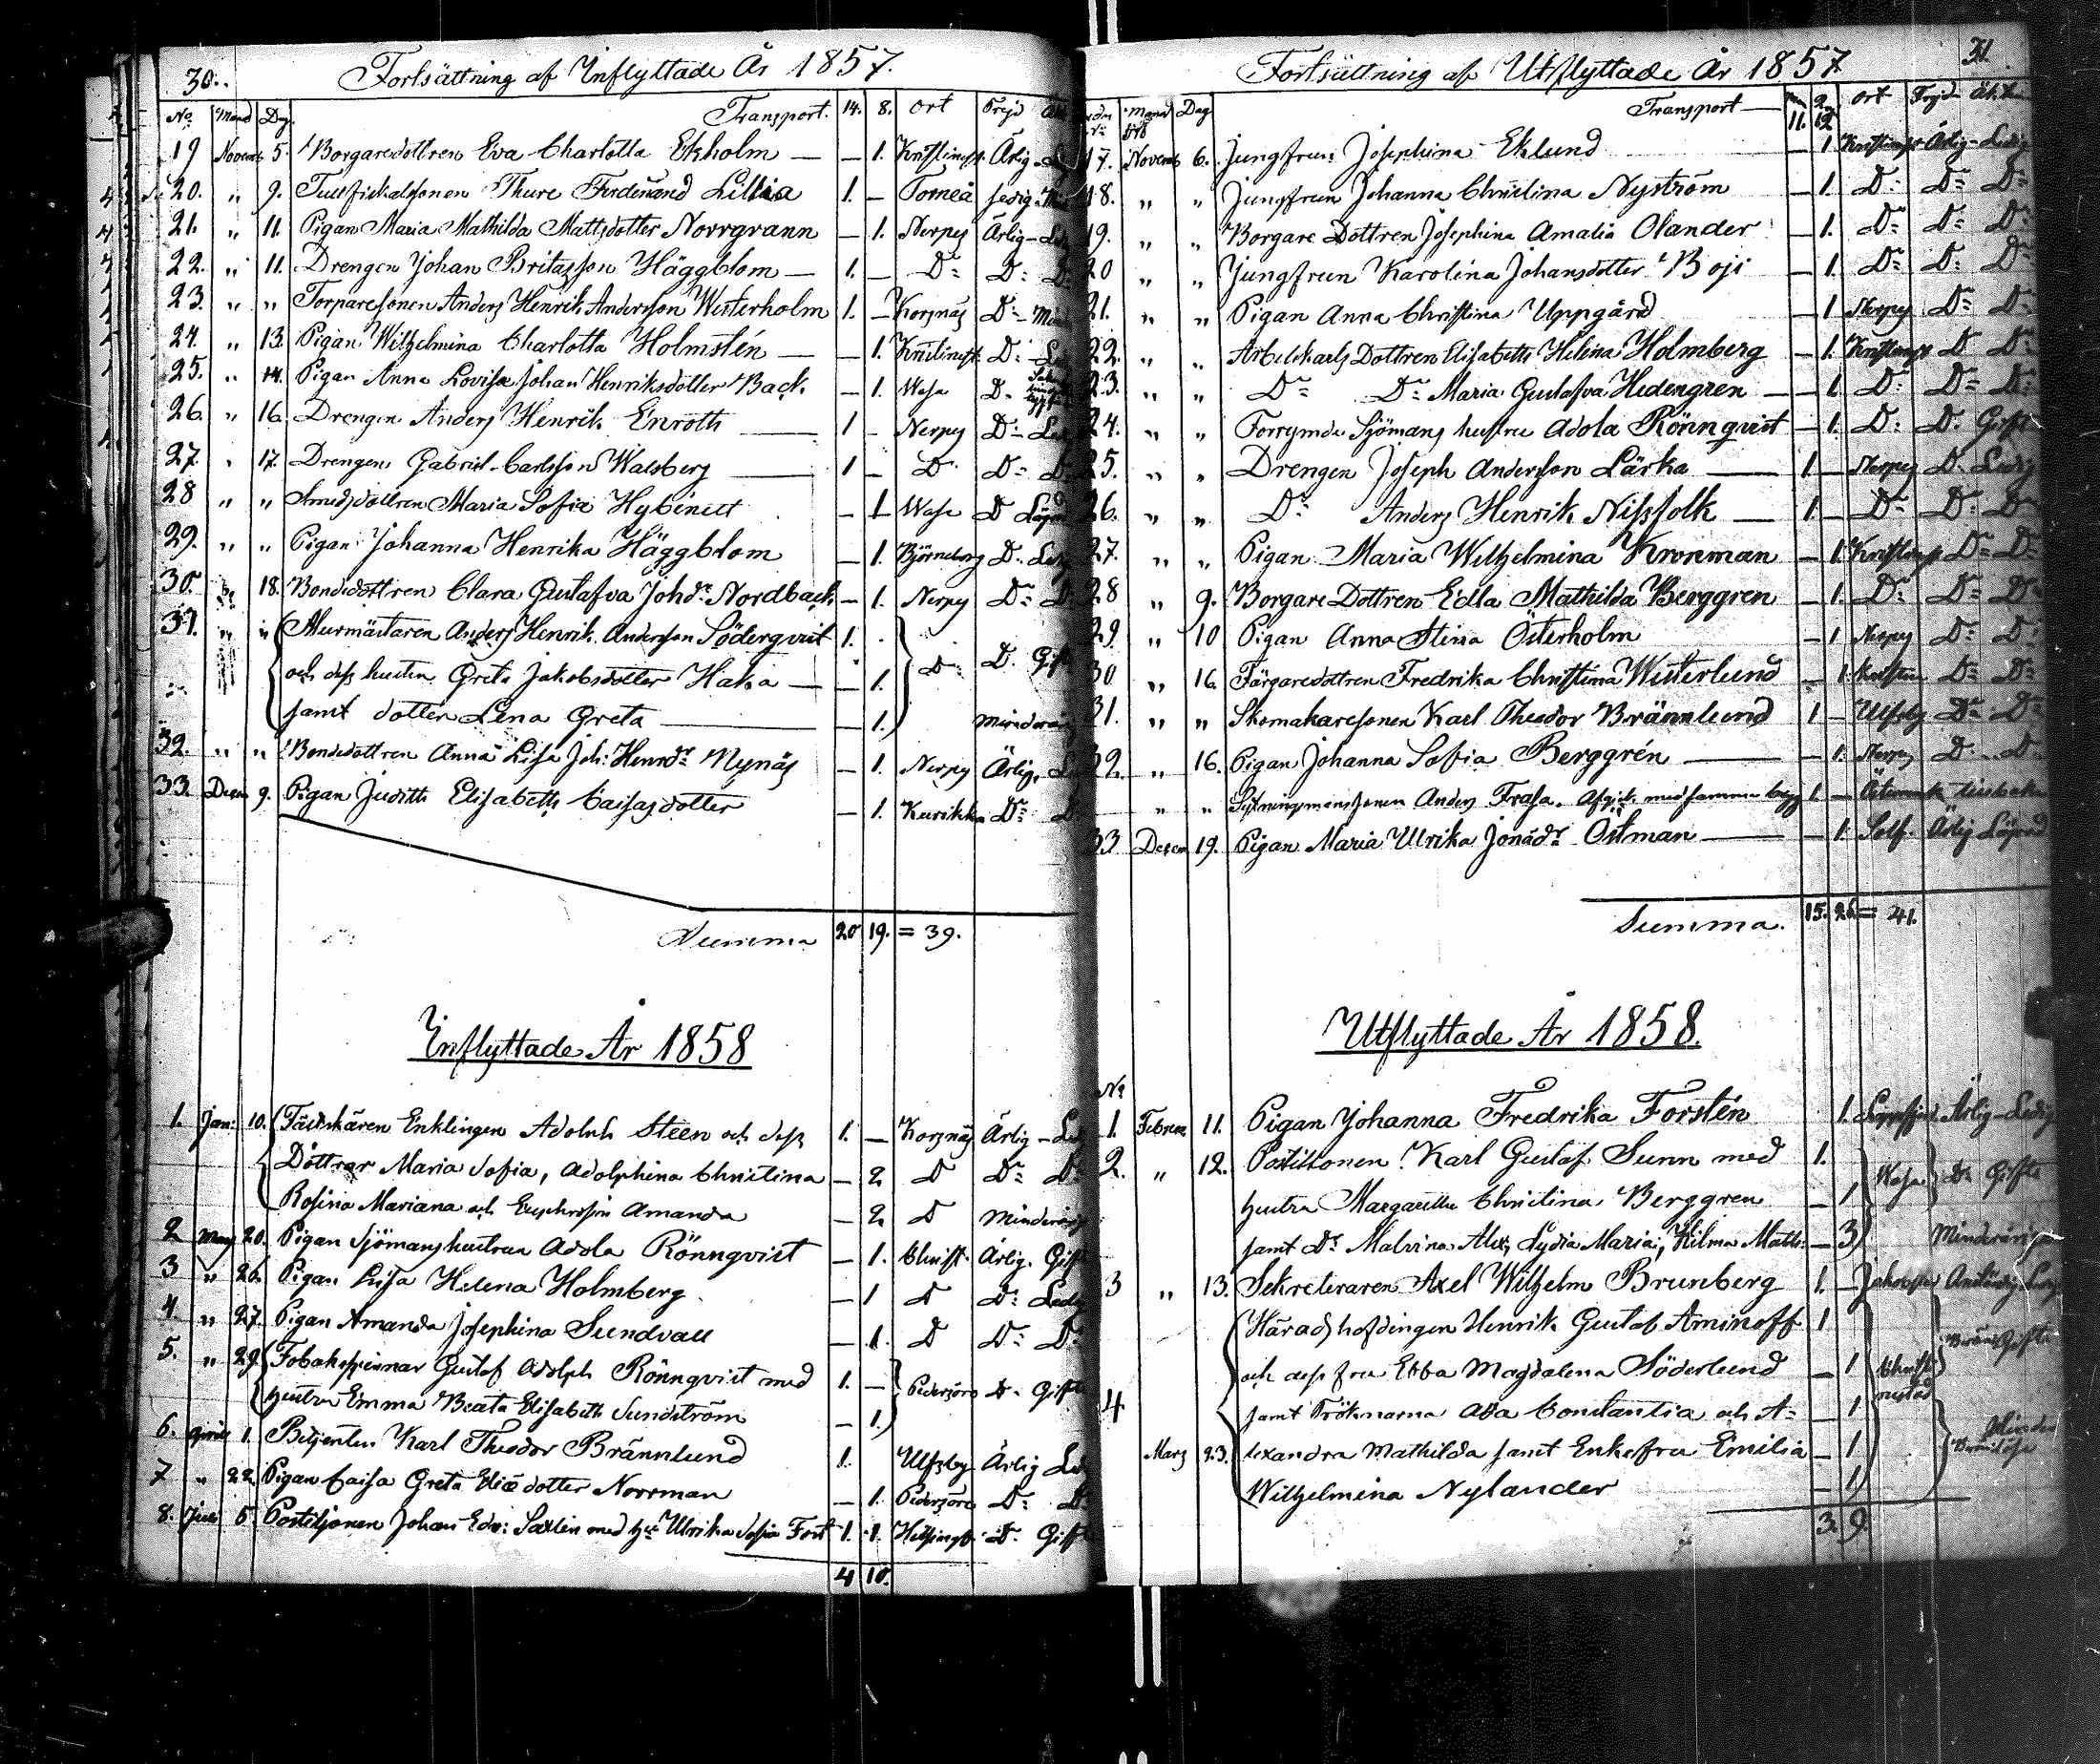 30.
Fortsättning af Inflyttade År 1857.
No Månd Dag Transport. 14. 8. Ort Frejd
19 Novemb 5. Borgaredottren Eva Charlotta Ekholm — — 1. Kristinest. Ärlig
20. " 9. Tullfiskalssonen Thure Ferdinand Lillia 1. — Torneå
21. " 11. Pigan Maria Mathilda Mattsdotter Norrgrann — 1. Nerpes Ärlig
22. " 11. Drengen Johan Britasson Häggblom — 1. — Do Do
23. " " Torparesonen Anders Henrik Andersson Westerholm 1. — Korsnäs Do
24. " 13. Pigan Wilhelmina Charlotta Holmstén — — 1. Kristinest. Do
25. " 14. Pigan Anna Lovisa Johan Henriksdotter Back. — 1. Wasa D.
26. " 16. Drengen Anders Henrik Enroth — 1 — Nerpes Do
27. " 17. Drengen Gabriel Carlsson Walsberg — 1 — D. Do
28 " " Smedsdottren Maria Sofia — 1 Wasa D
29. " " Pigan Johanna Henrika Häggblom — 1. Björneborg D.
30. " 18. Bondedottren Clara Gustafva Johdr Nordback — 1. Nerpes Do
31. " " Murmästaren Anders Henrik Andersson Söderqvist 1.
och dess hustru Greta Jakobsdotter Haka — — 1. Do D. Gift
samt dotter Lena Greta — — 1. Minderårig
32. " " Bondedottren Anna Lisa Joh: Henrdr Nynäs — 1. Nerpes Ärlig.
33. Decem 9. Pigan Judith Elisabeth Caisasdotter — 1. Kurikka Do
Summa 20 19. = 39.
Inflyttade År 1858
1. Jan: 10. Enklingen Adolph Steen och dess 1. — Korsnäs Ärlig
Döttrar Maria Sofia, Adolphina Christina — 2 D Do
Rosina Mariana och Euphrosin Amanda — 2 D Minderårig
2 20. Pigan Sjömanshustrun Adola Rönnqvist — 1. Christ. Ärlig. Gift
3 " 26. Pigan Lisa Helena Holmberg — 1 D Do Ledig
4. " 27. Pigan Amanda Josephina Sundvall — 1. D Do Do
5. " 29. Tobakspinnar Gustaf Adolph Rönnqvist med 1. — Pedersöre Do Gift
hustru Emma Beata Elisabeth Sundström — 1.
6. 1. Betjenten Karl Theodor Brännlund 1. Ulfsby Ärlig
7 " 22. Pigan Caisa Greta Eliædotter Norrman — 1. Pedersöre Do
8. Juli 5. Postiljonen Johan Edv: Saxlin med Ulrika Sofia Fort 1. 1. Helsingf. D. Gift
4 10.
31.
Fortsättning af Utflyttade År 1857
Månd Dag Transport — 11. 12 Ort Frejd
17. Novemb 6. Jungfrun Josephina Eklund — 1 Kristinest Ärlig - Ledig
18. " " Jungfrun Johanna Christina Nyström — 1. Do Do Do
19. " " Borgare Dottren Josephina Amalia Olander — 1. Do Do Do
20 " " Jungfrun Karolina Johansdotter Boji — 1. Do Do Do
21. " " Pigan Anna Christina Uppgård — 1 Nerpes Do Do
22. " " Arbetskarls Dottren Elisabeth Helena Holmberg — 1. Kristinest D Do
23. " " Do Do Maria Gustafva Hedengren — — 1. Do Do Do
24. " " Förrymde Sjömans hustru Adola Rönnqvist — 1. D. D. Gift
25. " " Drengen Joseph Andersson Lärka — 1. — Nerpes D. Ledig
26. " " Do Anders Henrik Nissfolk — 1. — Do Do Do
27. " " Pigan Maria Wilhelmina Kronman — 1. Kristinest Do Do
28 " 9. Borgare Dottren Edla Mathilda Berggren — 1. Do Do Do
29 " 10 Pigan Anna Stina Österholm — 1 Nerpes Do Do
30 " 16. Färgaredottren Fredrika Christina Westerlund — 1. Kristine Do Do
31. " " Skomakaresonen Karl Theodor Brännlund 1 — Ulfsby Do Do
32. " 16. Pigan Johanna Sofia Berggrén — — 1. Nerpes D. D.
" " Sytningsmanssonen Anders Frasa. Afgick med samma 1. — Östermark tillbaka
33 Decem 19. Pigan Maria Ulrika Jonædr Östman — — 1. Solf. Ärlig
Summa. 15. 26 = 41.
Utflyttade År 1858.
No
1. Februar 11. Pigan Johanna Fredrika Forstén 1. Ärlig - Ledig
2. " 12. Postillionen Karl Gustaf Sunn med 1.
hustru Margaretha Christina Berggren — 1 Wasa Do Gifte
samt Dr Malvina Alex, Lydia Maria, Hilma Math: — 3 Minderåriga
3 " 13. Sekreteraren Axel Wilhelm Brunberg 1. — Jakobstad
Häradshöfdingen Henrik Gustaf Aminoff 1
och dess fru Ebba Magdalena Söderlund — 1
4 samt Fröknarna Ada Constantia och A= — 1
Mars 23. lexandra Mathilda samt Enkefru Emilia — 1
Wilhelmina Nylander — 1
3. 9.